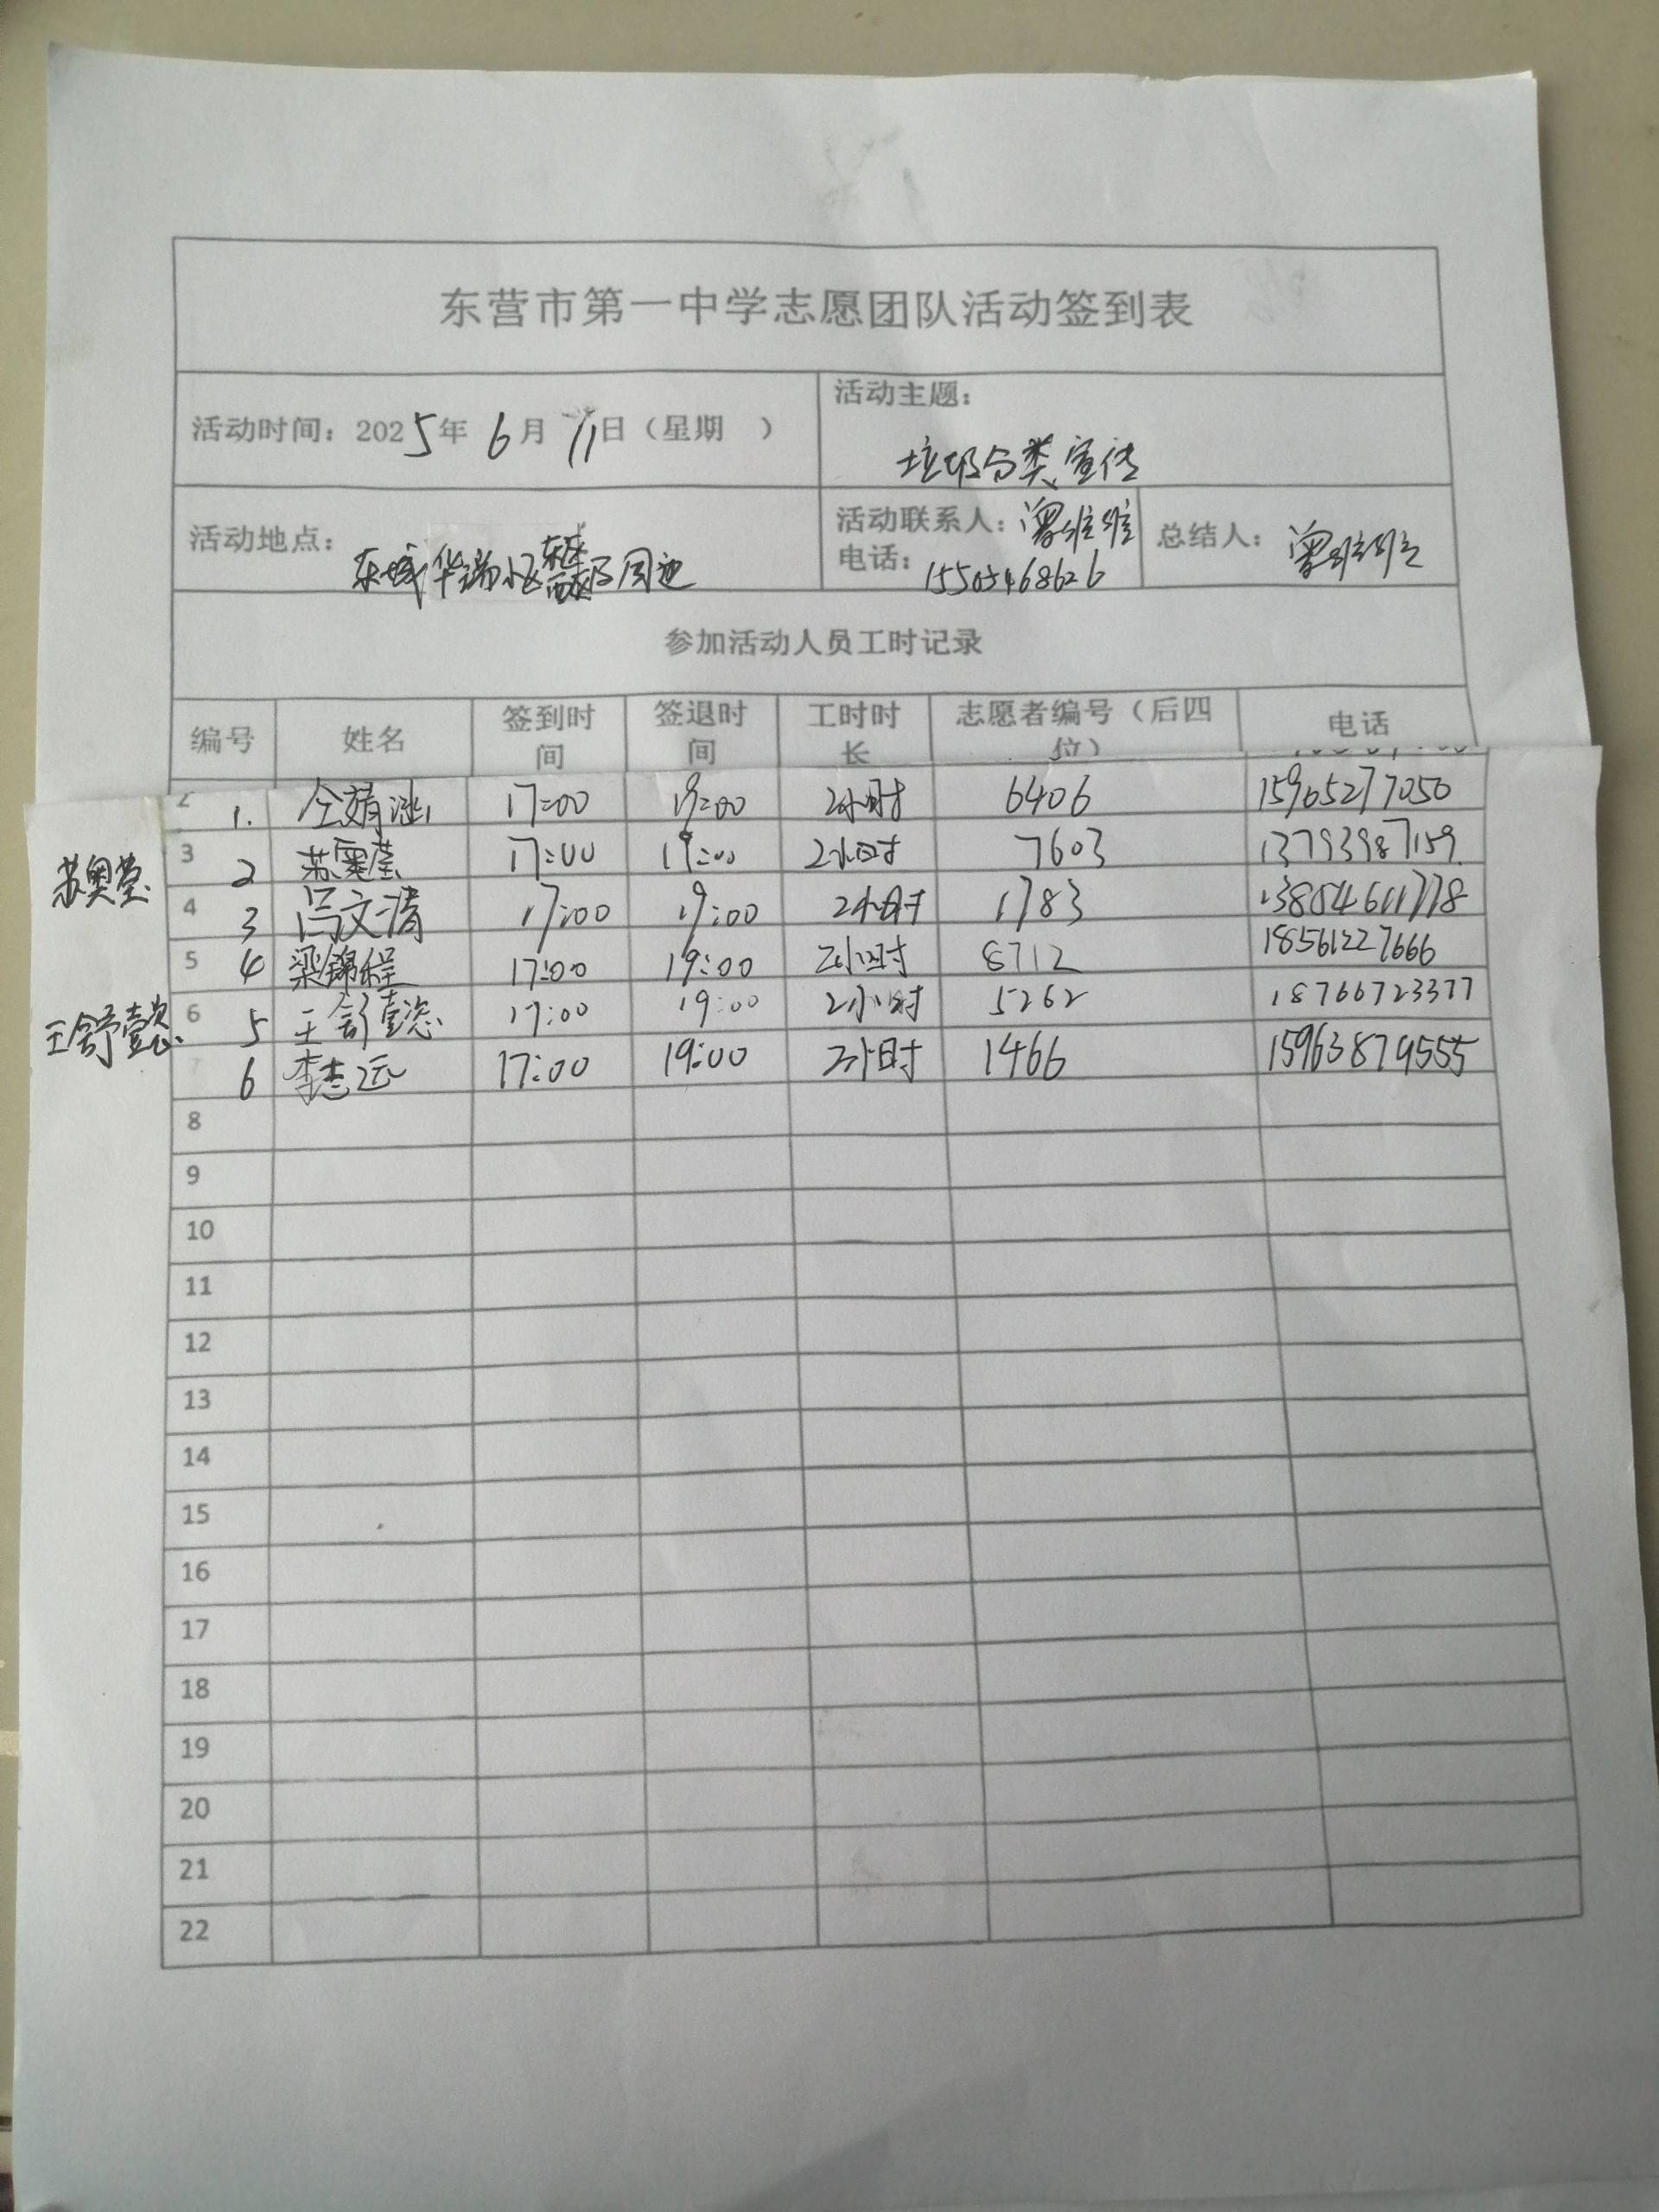 东营市第一中学志愿团队活动签到表
活动时间：2025年 6月 11日（星期 ）
活动主题：
垃圾分类宣传
活动地点：
东城华瑞小区及周边
活动联系人：曾维维
电话：15505468626
总结人：曾维维
参加活动人员工时记录
编号 姓名 签到时间 签退时间 工时时长 志愿者编号（后四位） 电话
2 1. 17:00 19:00 2小时 6406 15965277050
苏奥莹 3 2 苏奥莹 17:00 19:00 2小时 7603 13793987159
4 3 冯文清 17:00 19:00 2小时 1783 13884611778
5 4 梁锦程 17:00 19:00 2小时 8712 18561227666
王舒懿 6 5 王舒懿 17:00 19:00 2小时 5262 18766723377
7 6 李志远 17:00 19:00 2小时 1466 15963879555
8
9
10
11
12
13
14
15
16
17
18
19
20
21
22